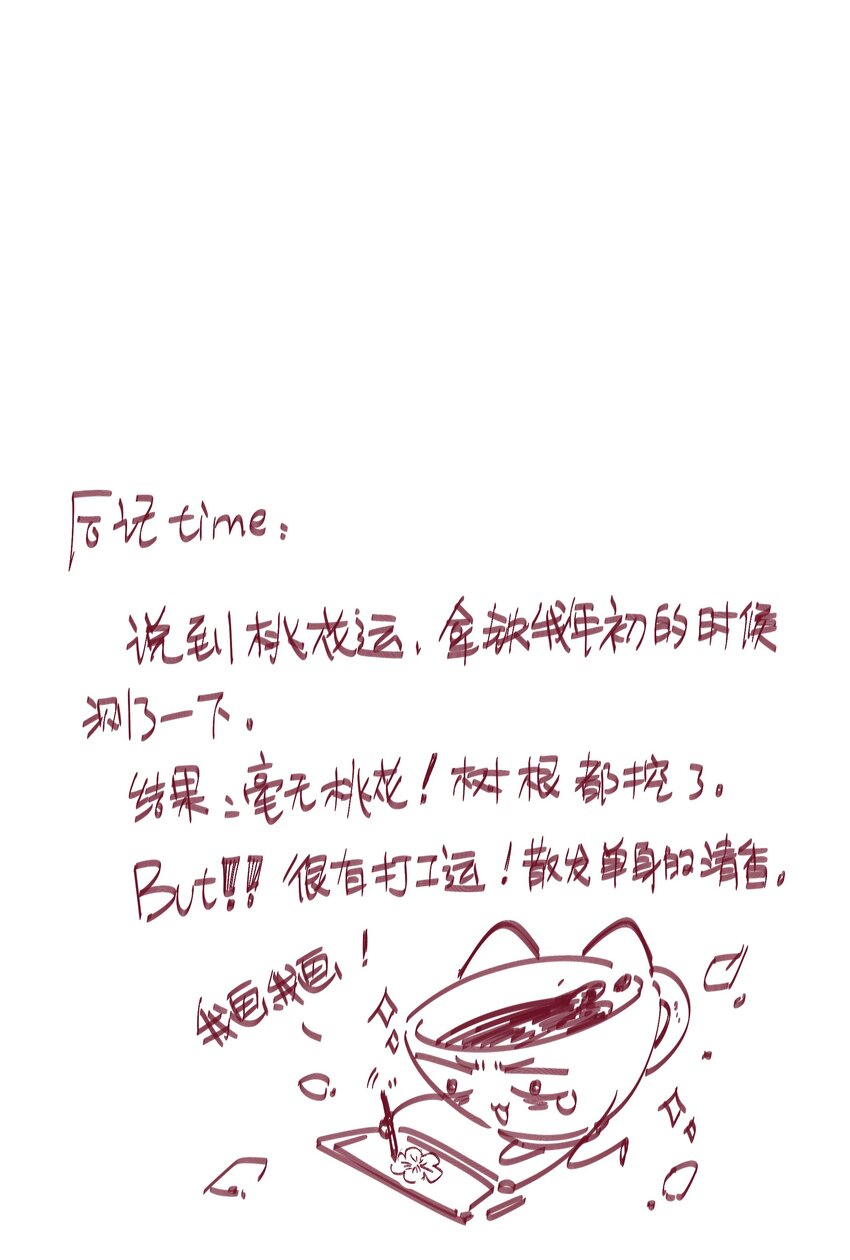 后记time：
说到桃花运、拿铁我年初的时候
测了一下。
结果：毫无桃花！树根都挖了。
But!!! 很有打工运！散发单身的清香。
我画我画！